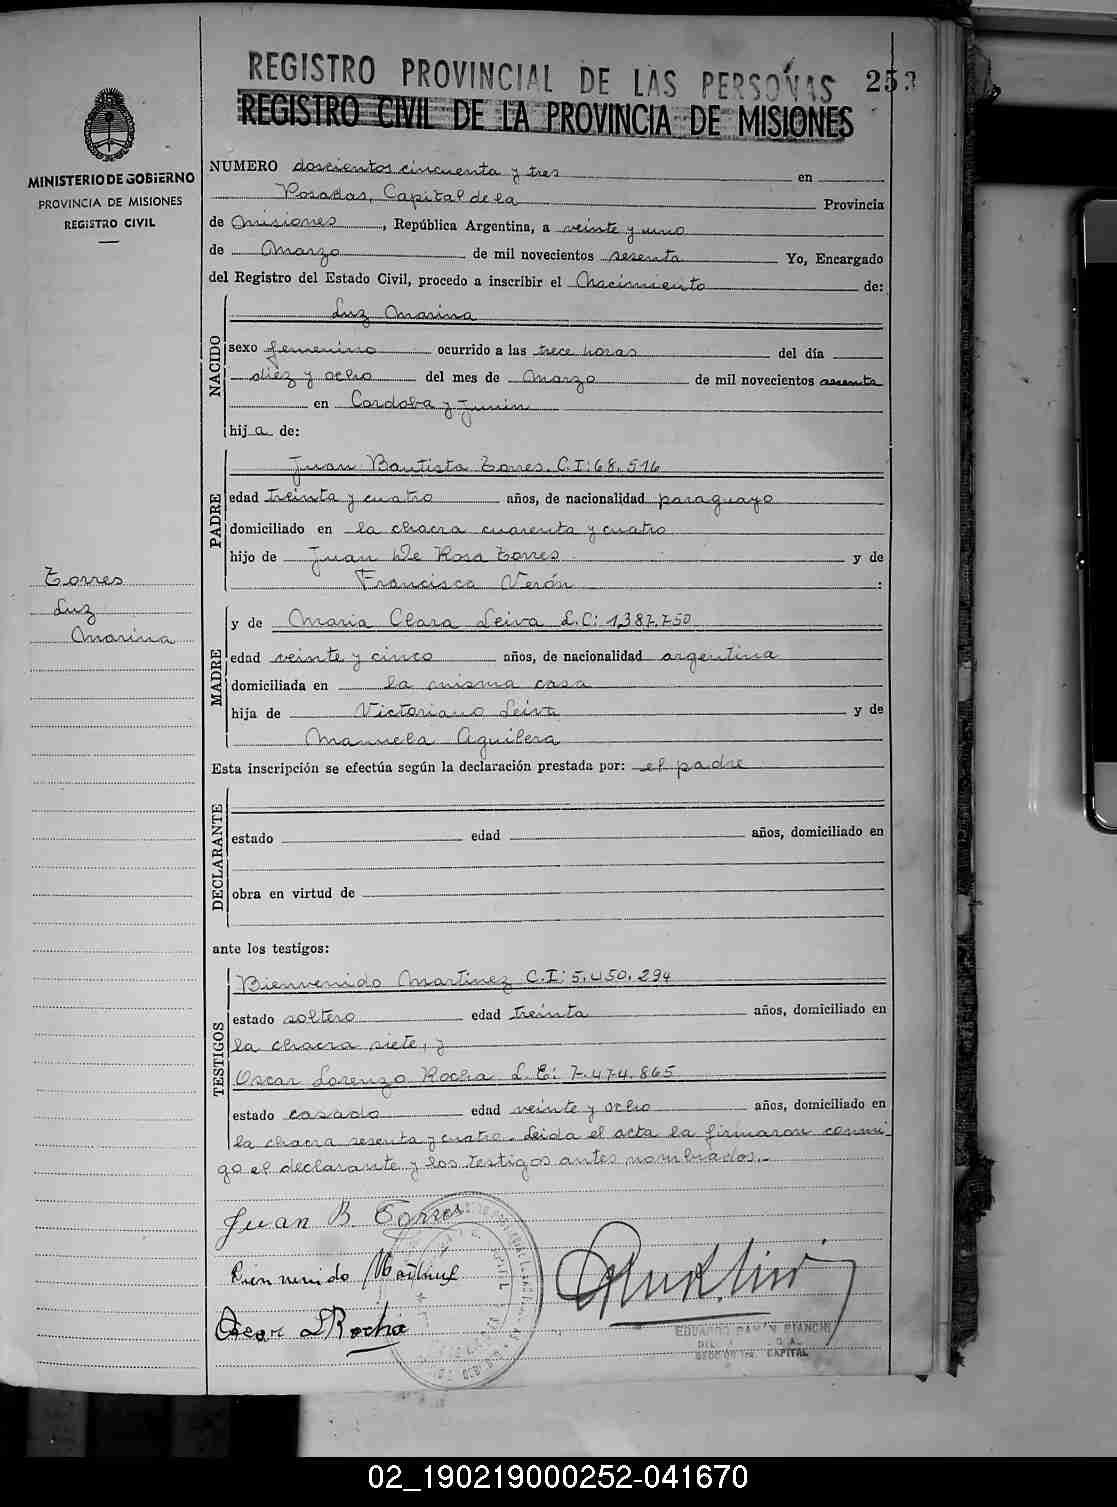 REGISTRO PROVINCIAL DE LAS PERSONAS 253
REGISTRO CIVIL DE LA PROVINCIA DE MISIONES
MINISTERIO DE GOBIERNO
PROVINCIA DE MISIONES
REGISTRO CIVIL
NUMERO doscientos cincuenta y tres en
Posadas, Capital de la Provincia
de Misiones, República Argentina, a veinte y uno
de Marzo de mil novecientos sesenta Yo, Encargado
del Registro del Estado Civil, procedo a inscribir el Nacimiento de:
NACIDO
Luz Marina
sexo femenino ocurrido a las trece horas del día
diez y ocho del mes de Marzo de mil novecientos sesenta
en Cordoba y Junin
hija de:
PADRE
Juan Bautista Torres. C.I: 68.516
edad treinta y cuatro años, de nacionalidad paraguayo
domiciliado en la chacra cuarenta y cuatro
hijo de Juan De Rosa Torres y de
Francisca Verón :
Torres
Luz
Marina
MADRE
y de Maria Clara Leiva L.C: 1,387.750
edad veinte y cinco años, de nacionalidad argentina
domiciliada en la misma casa
hija de Victoriano Leiva y de
Manuela Aguilera
Esta inscripción se efectúa según la declaración prestada por: el padre
DECLARANTE
estado edad años, domiciliado en
obra en virtud de
ante los testigos:
TESTIGOS
Bienvenido Martinez C.I: 5.450.294
estado soltero edad treinta años, domiciliado en
la chacra siete, y
Oscar Lorenzo Rocha L.E: 7.474.865
estado casado edad veinte y ocho años, domiciliado en
la chacra sesenta y cuatro. Leida el acta la firmaron conmi-
go el declarante y los testigos antes nombrados.-
Juan B. Torres
Bienvenido Martinez
Oscar L Rocha
EDUARDO RAMÓN BIANCHI
CAPITAL
02_190219000252-041670